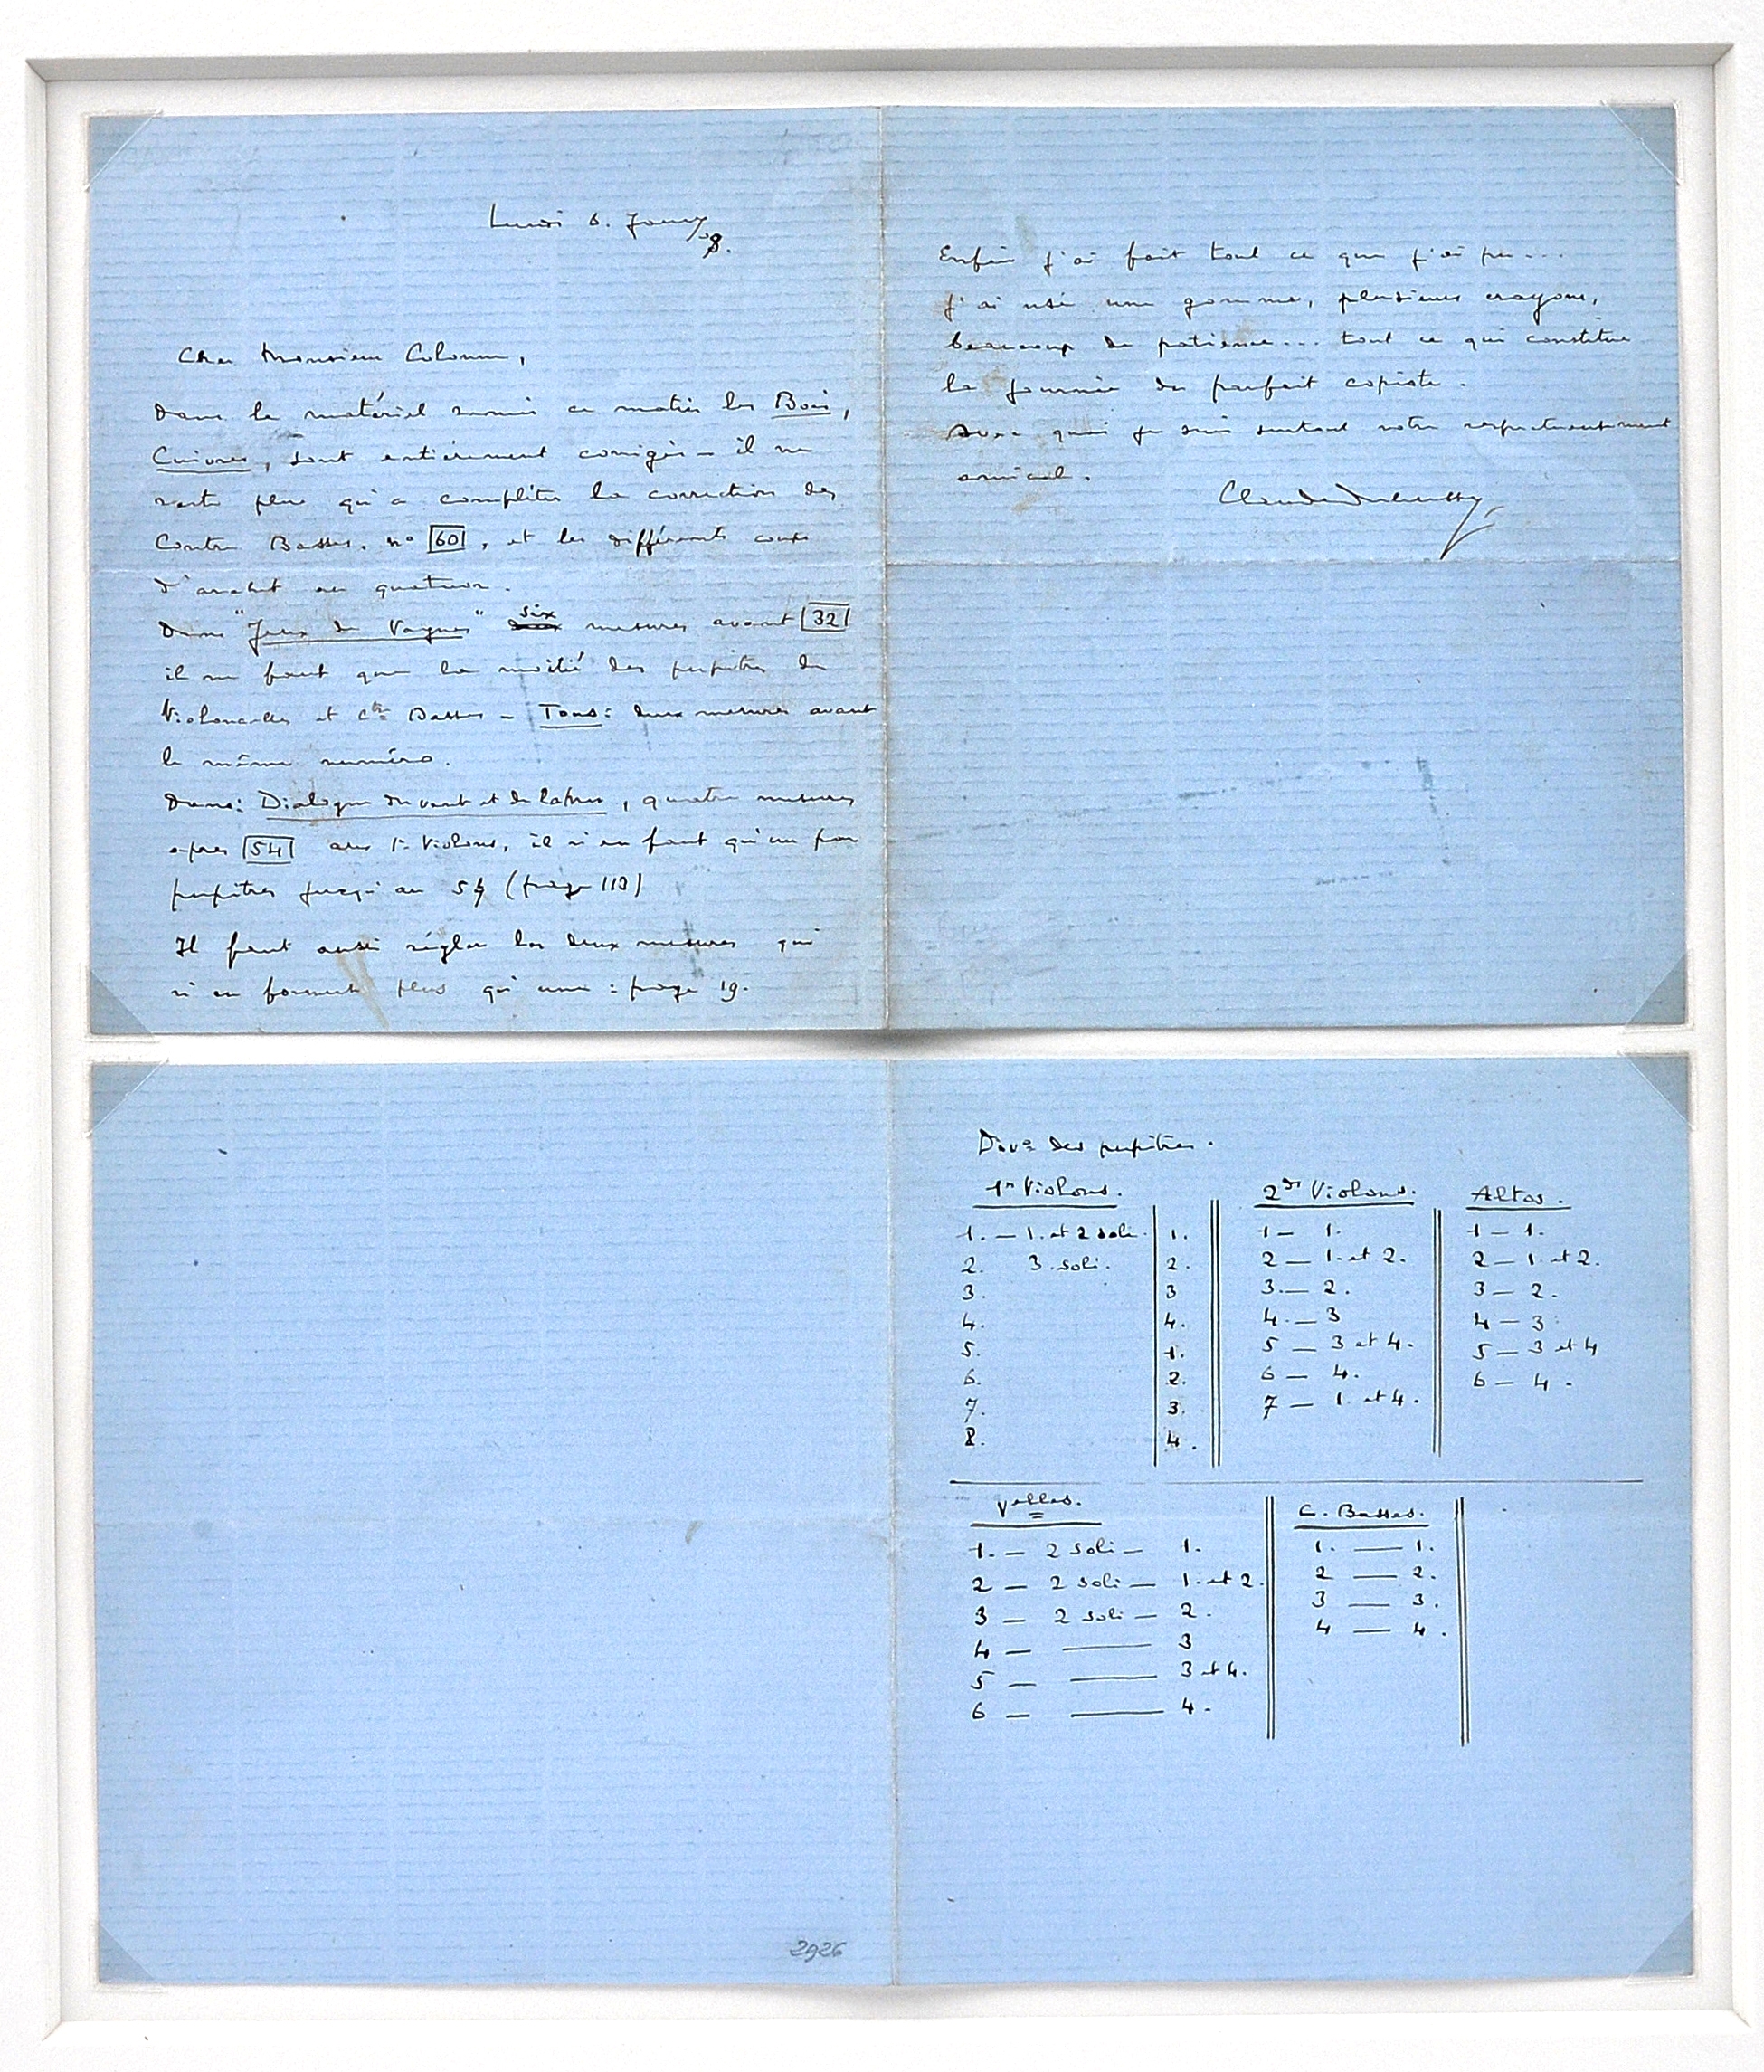 Lundi 6. Janv/08.
Cher Monsieur Colonne,
Dans le matériel remis ce matin les Bois,
Cuivres, sont entièrement corrigés — il ne
reste plus qu'à compléter la correction des
Contre Basses, nº 60, et les différents coups
d'archet au quatuor.
Dans "Jeux de Vagues" six mesures avant 32
il ne faut que la moitié des pupitres de
Violoncelles et Ctre Basses — Tous: deux mesures avant
le même numéro.
Dans: Dialogue du vent et de la Mer, quatre mesures
après 54 aux 1rs Violons, il n'en faut qu'un par
pupitres jusqu'au (page 113)
Il faut aussi régler les deux mesures qui
n'en forment plus qu'une: page 19.
Enfin j'ai fait tout ce que j'ai pu...
j'ai usé une gomme, plusieurs crayons,
beaucoup de patience... tout ce qui constitue
la journée du parfait copiste.
Avec quoi je suis surtout votre respectueusement
amical.
Claude Debussy
Divon des pupitres.
1rs Violons.
1. — 1. et 2 soli. 1.
2. 3. soli. 2.
3. 3
4. 4.
5. 1.
6. 2.
7. 3.
8. 4.
2ds Violons.
1 — 1.
2 — 1. et 2.
3. — 2.
4. — 3
5 — 3 et 4.
6 — 4.
7 — 1. et 4.
Altos.
1 — 1.
2 — 1. et 2.
3 — 2.
4 — 3.
5 — 3 et 4
6 — 4.
Velles.
1. — 2 soli — 1.
2 — 2 soli — 1. et 2.
3 — 2 soli — 2.
4 — — 3
5 — — 3 et 4.
6 — — 4.
C. Basses.
1. — 1.
2 — 2.
3 — 3.
4 — 4.
2926